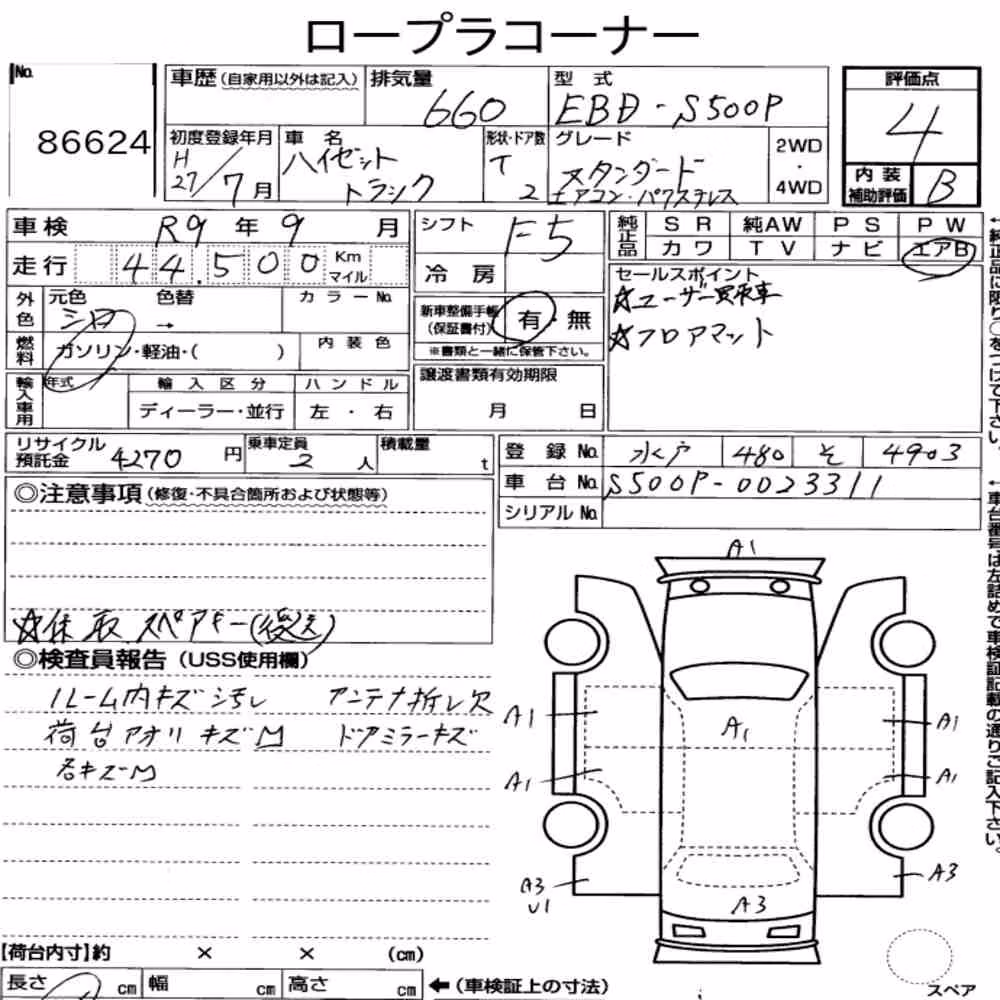 ロープラコーナー
No.
86624
車歴 (自家用以外は記入)
排気量
660
型 式
EBD - S500P
評価点
4
初度登録年月
H
27/7月
車 名
ハイゼット
トラック
形状・ドア数
T
2
グレード
スタンダード
エアコン・パワステレス
2WD
・
4WD
内 装
補助評価
B
車検 R9 年 9 月
走行 44.500 Km
マイル
シフト F5
冷 房
純正品
S R 純AW P S P W
カワ T V ナビ エアB
セールスポイント
☆ユーザー買取車
☆フロアマット
外色
元色 色替 カラーNo.
シロ →
燃料
ガソリン・軽油・( )
内 装 色
新車整備手帳
(保証書付)
有・無
※書類と一緒に保管下さい。
輸入車用
年式
輸 入 区 分
ハ ン ド ル
ディーラー・並行
左 ・ 右
譲渡書類有効期限
月 日
リサイクル
預託金 4270 円
乗車定員
2 人
積載量
t
登 録 No. 水戸 480 そ 4903
車 台 No. S500P-0023311
シリアル No.
◎注意事項 (修復・不具合箇所および状態等)
☆保 取 スペアキー(後送)
◎検査員報告 (USS使用欄)
ルーム内キズ 汚レ アンテナ折レ欠
荷台アオリ キズM ドアミラーキズ
各キズM
A1
A1
A1
A1
A1
A1
A3
U1
A3
A3
スペア
【荷台内寸】約 × × (cm)
長さ cm 幅 cm 高さ cm ←(車検証上の寸法)
←純正品に限り○をつけて下さい。
←車台番号は左詰めで車検証記載の通りご記入下さい。